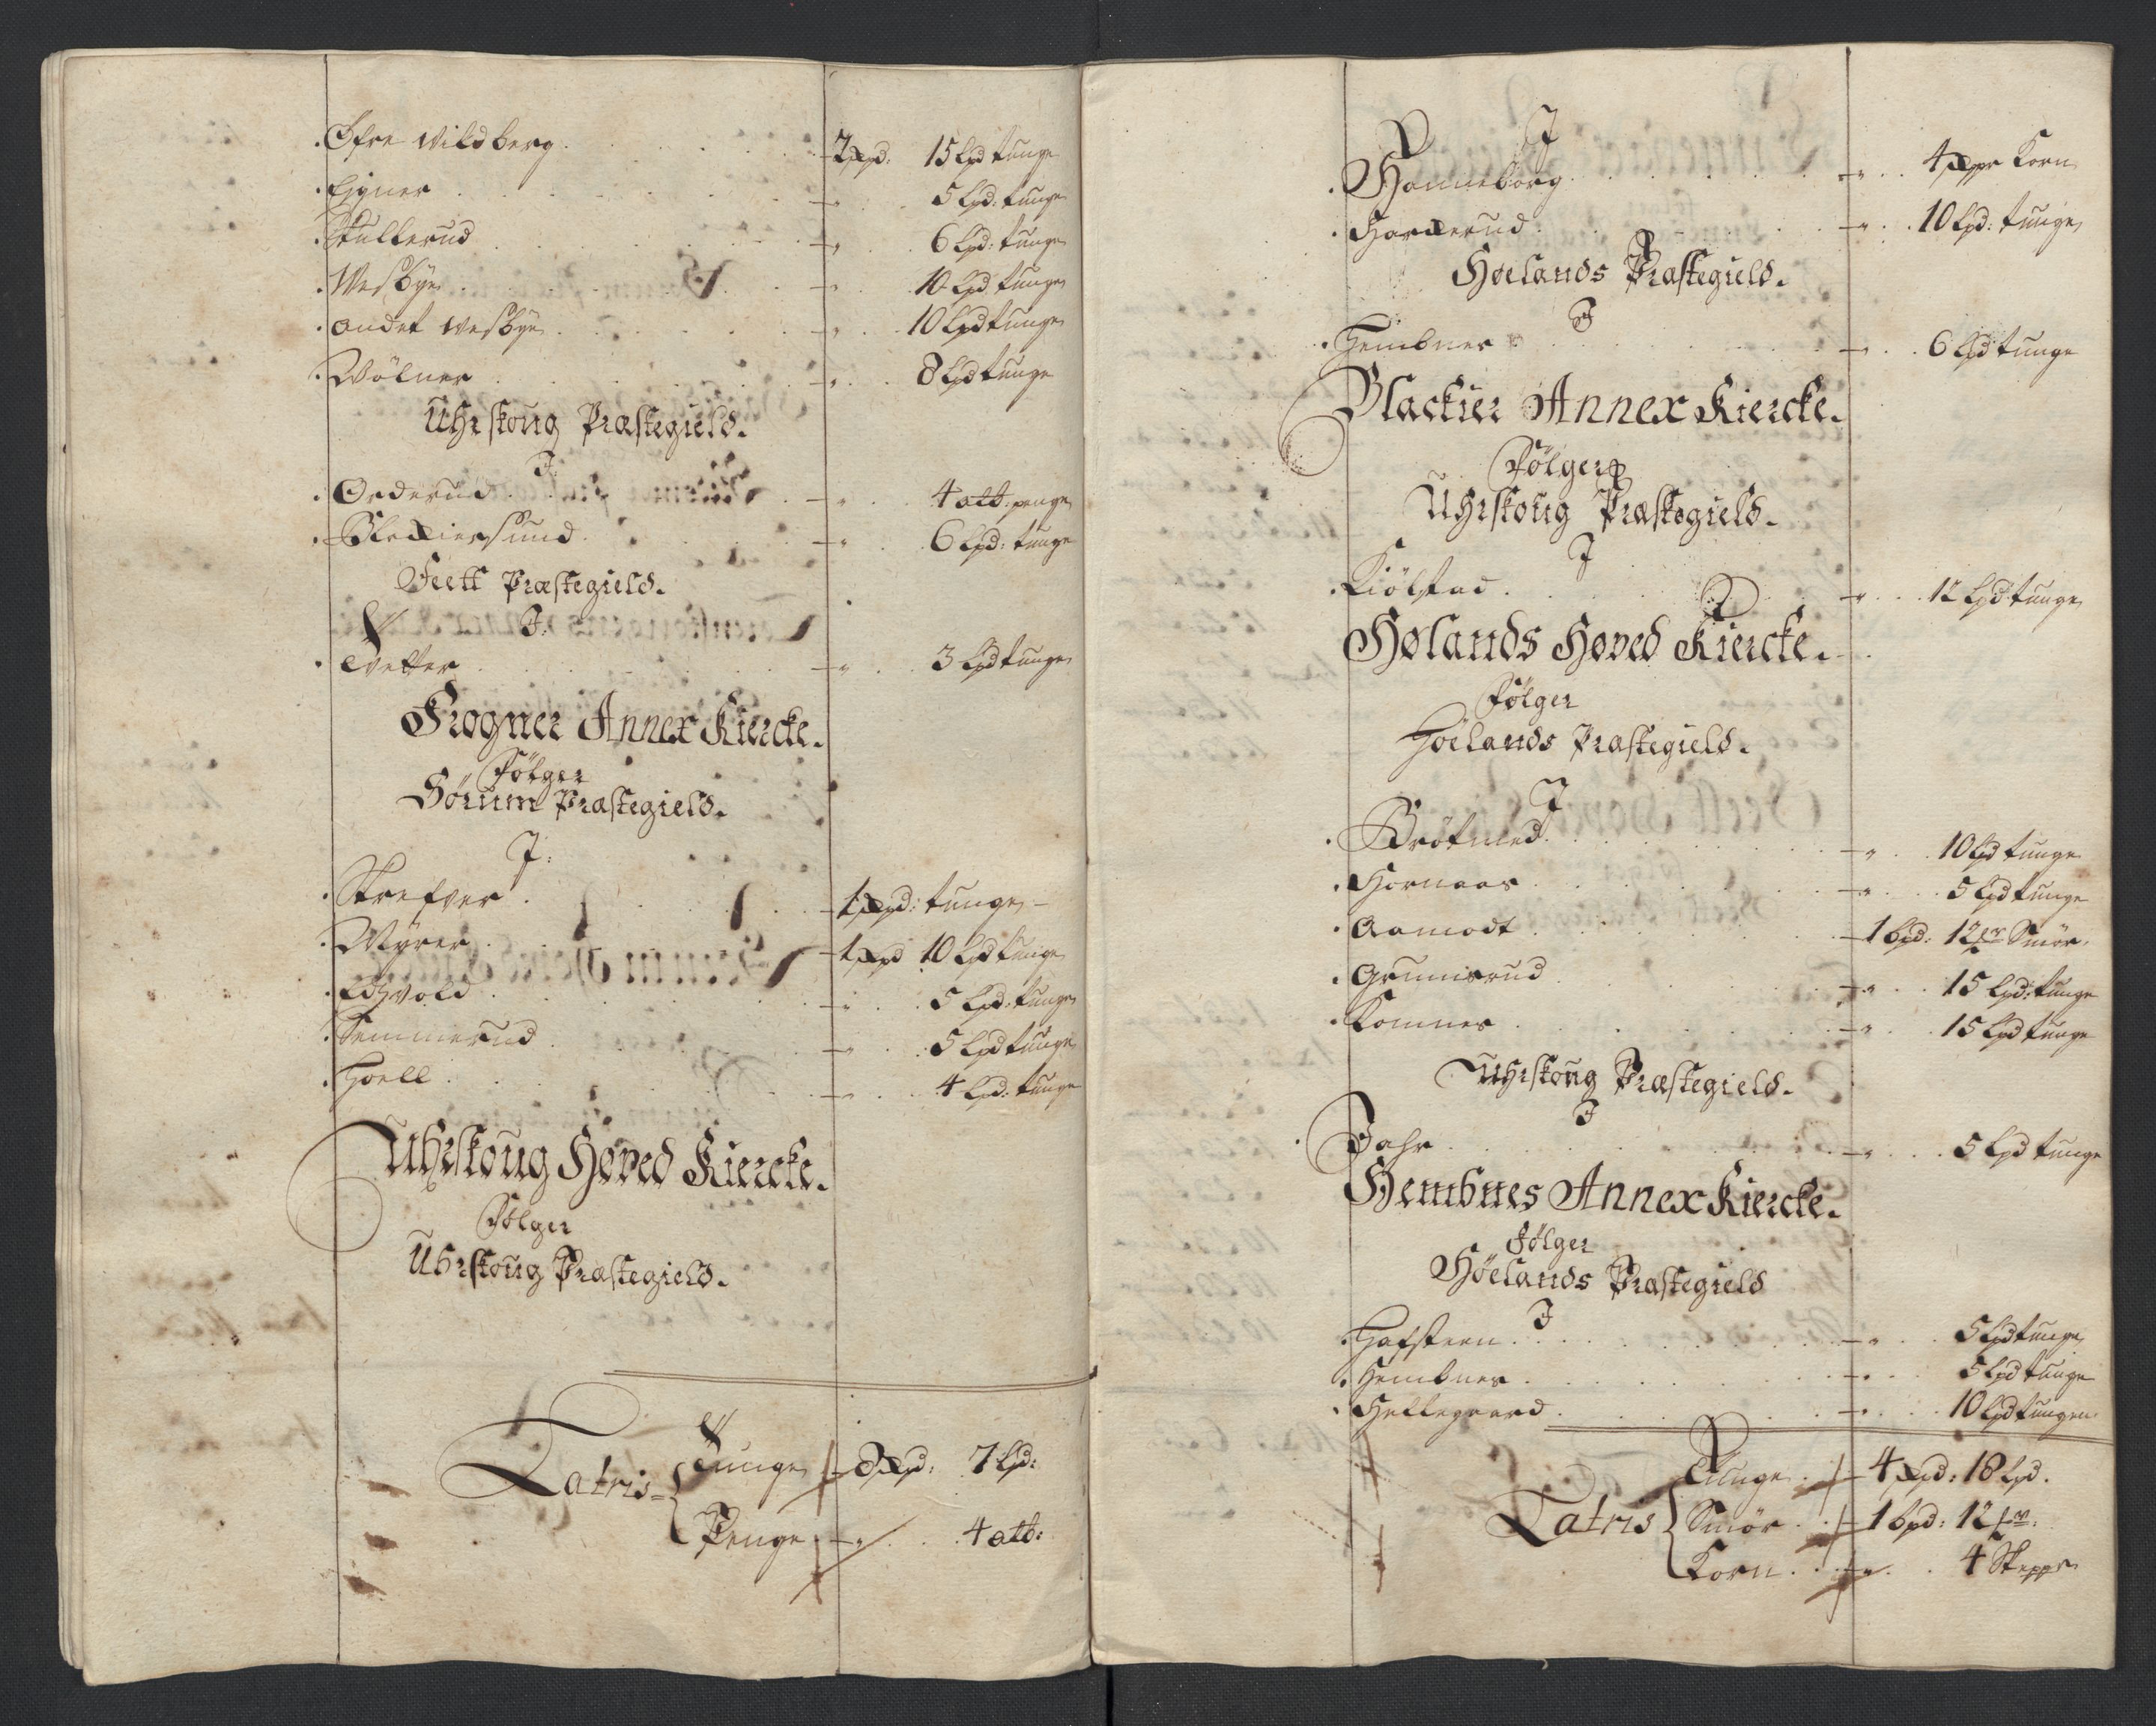 Øfre Wildberg . . . 2 Xpd: 15 Lpd tunge
Eigner . . . " 5 Lpd: tunge
Kullerud . . . " 6 Lpd: tunge
Wesbye . . . " 10 Lpd tunge
Andet Wesbye . . . " 10 Lpd tunge
Wølner . . . " 8 Lpd tunge
Uhrskoug Præstegield.
J:
Orderud . . . " 4 alb. penge
Blexiersund . . . " 6 Lpd: tunge
Feett Præstegield.
J:
Tvetter . . . " 3 Lpd tunge
Frogner Annex Kiercke.
Følger
Sørum Præstegield.
J:
Strefver . . . 1 Xpd: tunge
Myrer . . . 1 Xpd 10 Lpd tunge
Edsvold . . . " 5 Lpd: tunge
Semmerud . . . " 5 Lpd tunge
Hoell . . . " 4 Lpd: tunge
Uhrskoug Høved Kiercke.
Følger
Uhrskoug Præstegield.
Latris Tunge 8 Xpd: 7 Lpd:
Penge " 4 alb:
J
Honneborg . . . " 4 Xppr Korn
Harxerud . . . " 10 Lpd: tunge
Høelands Præstegield.
J
Hembnes . . . " 6 Lpd tunge
Blackier Annex Kiercke.
Følger
Uhrskoug Præstegield.
J
Kiølstad . . . " 12 Lpd tunge
Hølands Høved Kiercke.
Følger
Høelands Præstegield.
J
Brøtned . . . " 10 Lpd tunge
Hornaas . . . " 5 Lpd tunge
Aamodt . . . 1 bpd: 12 mr Smør.
Grunisrud . . . " 15 Lpd: tunge
Komnes . . . " 15 Lpd tunge
Uhrskoug Præstegield.
J
Jahr . . . " 5 Lpd tunge
Hembnes Annex Kiercke.
Følger
Høelands Præstegield
J
Hafsteen . . . " 5 Lpd tunge
Hembnes . . . " 5 Lpd tunge
Hellegaard . . . " 10 Lpd tunge
Latris Tunge . 4 Xpd: 18 Lpd.
Smør . . 1 bpd: 12 mr.
Korn . . " 4 Skeppr